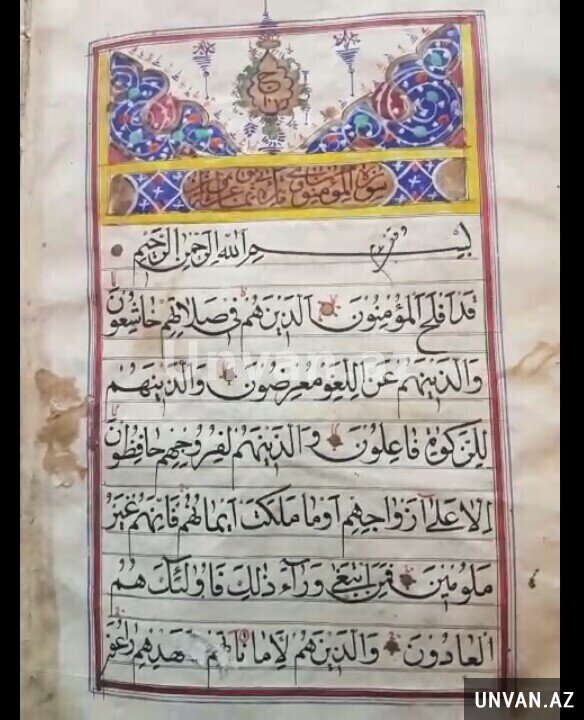 بسم الله الرحمن الرحیم
قد افلح المؤمنون الذینهم فی صلاتهم خاشعون
والذینهم عن اللغو معرضون والذینهم
للزکوة فاعلون والذینهم لفروجهم حافظون
الا علی ازواجهم او ما ملکت ایمانهم فانهم غیر
ملومین فمن ابتغی وراء ذلک فاولئک هم
العادون والذینهم لاماناتهم وعهدهم راعون
Unvan.az
UNVAN.AZ